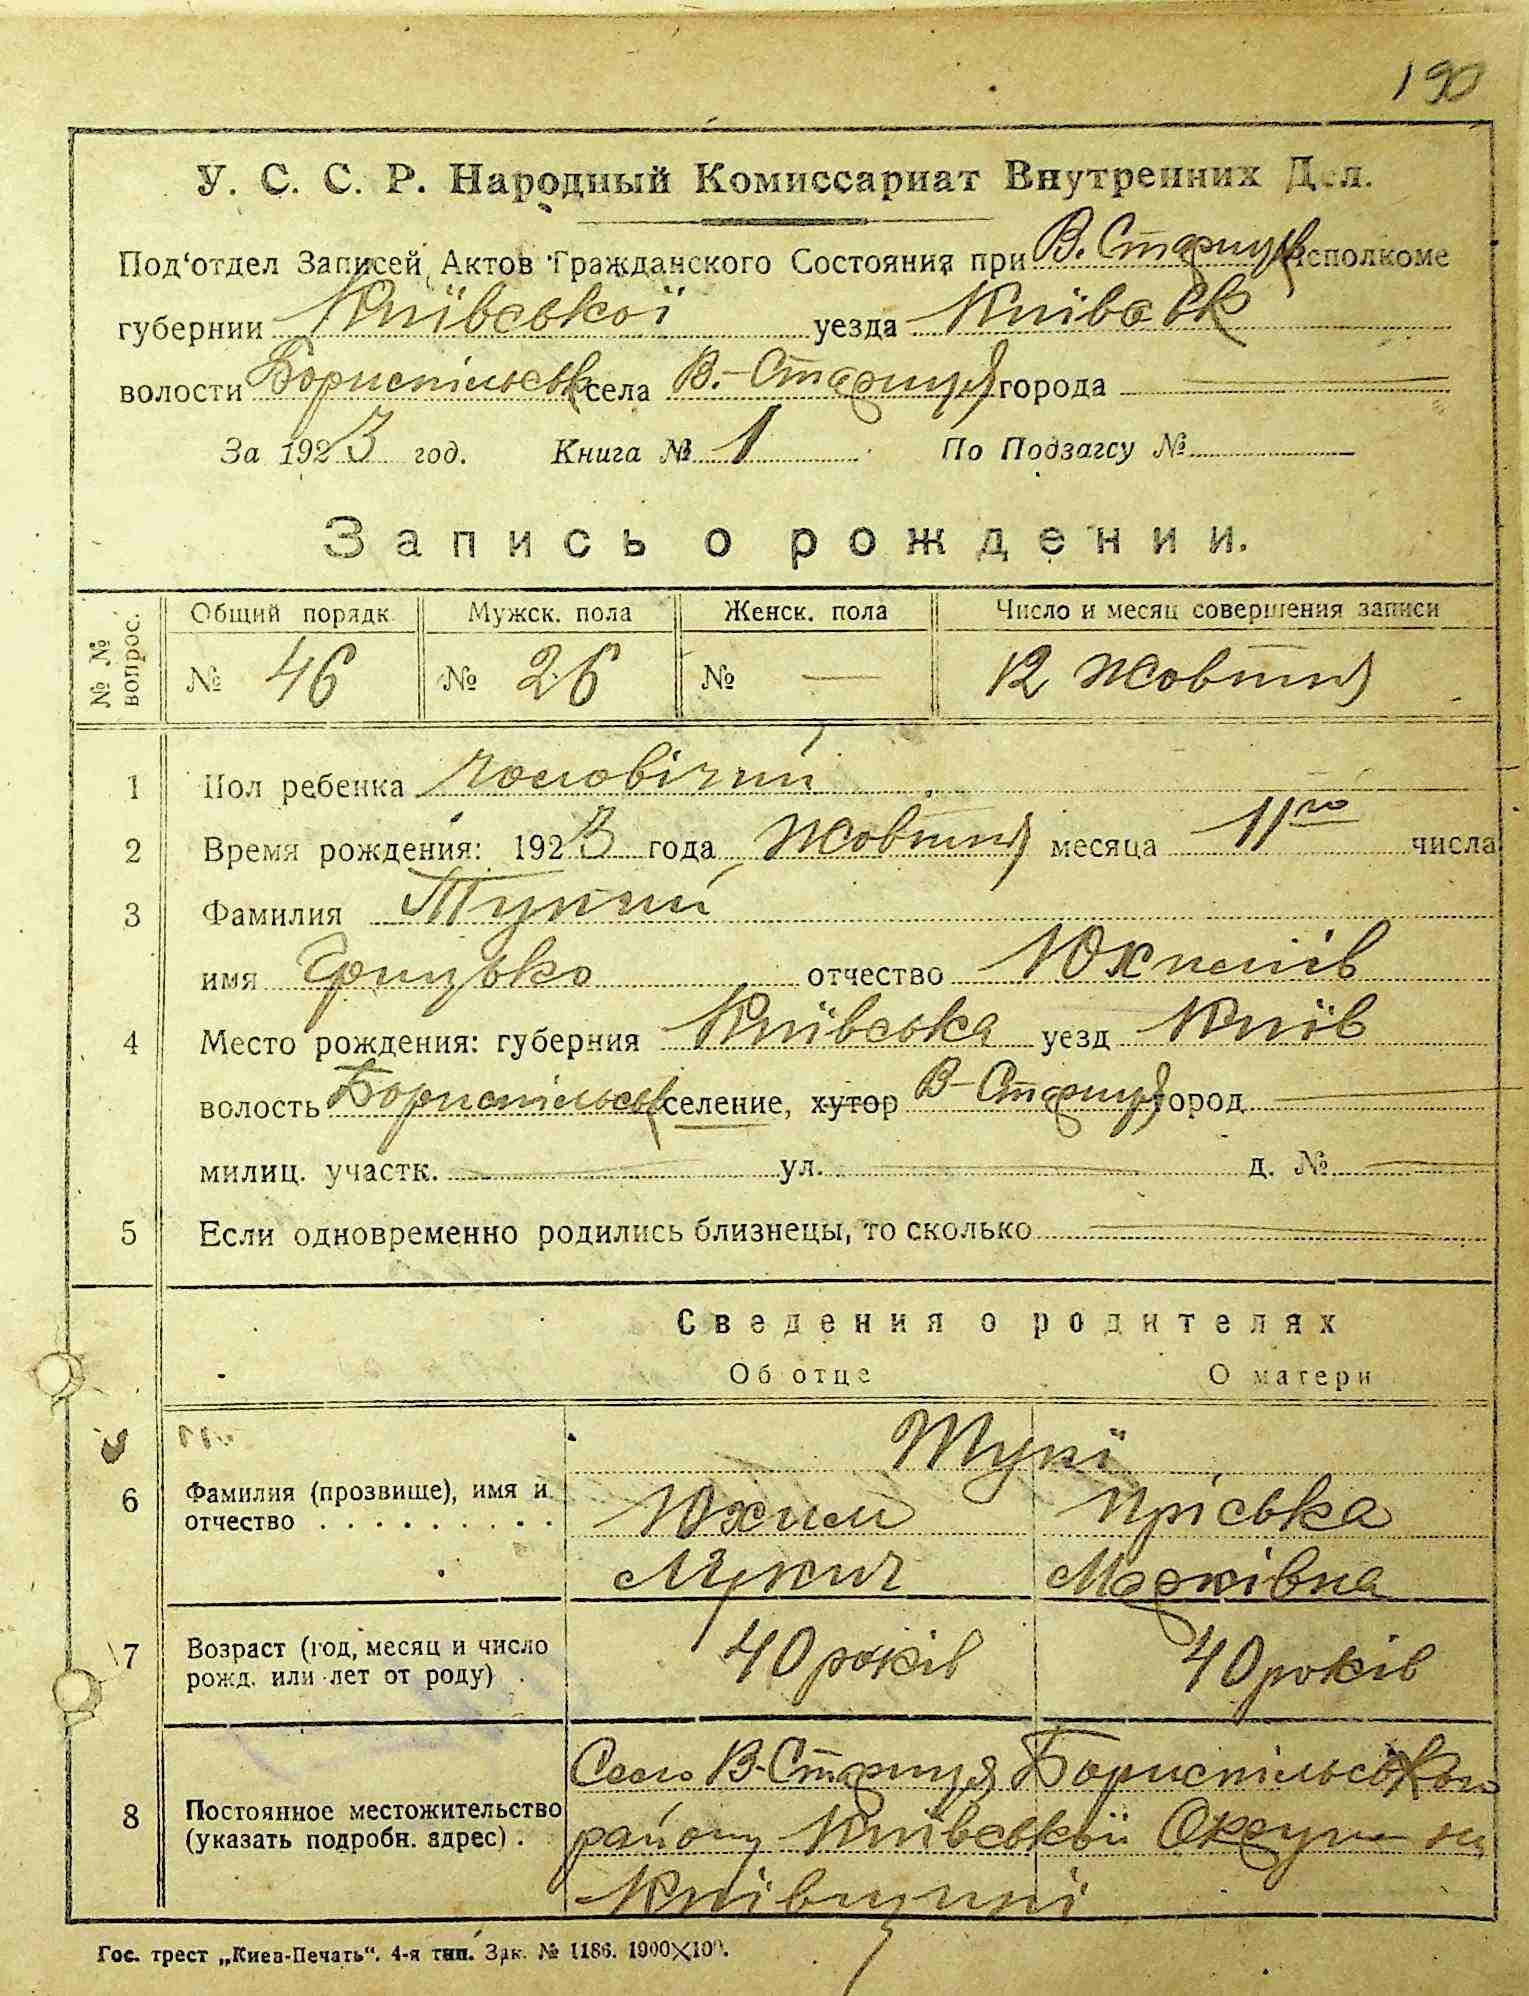 190
У. С. С. Р. Народный Комиссариат Внутренних Дел.
Под'отдел Записей Актов Гражданского Состояния при В. Стариця исполкоме
губернии Київської уезда Київськ
волости Бориспільськ села В.-Стариця города
За 1923 год. Книга № 1 По Подзагсу №
Запись о рождении.
№ № вопрос. Общий порядк. Мужск. пола Женск. пола Число и месяц совершения записи
№ 46 № 26 № — 12 Жовтня
1 Пол ребенка чоловічий
2 Время рождения: 1923 года Жовтня месяца 11го числа
3 Фамилия
имя Грицько отчество Юхимів
4 Место рождения: губерния Київська уезд Київ
волость Бориспільськ селение, хутор В-Стариця город
милиц. участк. ул. д. №
5 Если одновременно родились близнецы, то сколько
Сведения о родителях
Об отце О матери
6 Фамилия (прозвище), имя и отчество
Юхим Пріська
Лукич Марківна
7 Возраст (год, месяц и число рожд. или лет от роду) 40 років 40 років
8 Постоянное местожительство (указать подробн. адрес).
Село В-Стариця Бориспільського
району Київської Округи на
Київщині
Гос. трест „Киев-Печать“. 4-я тип. Зак. № 1186. 1000×100.